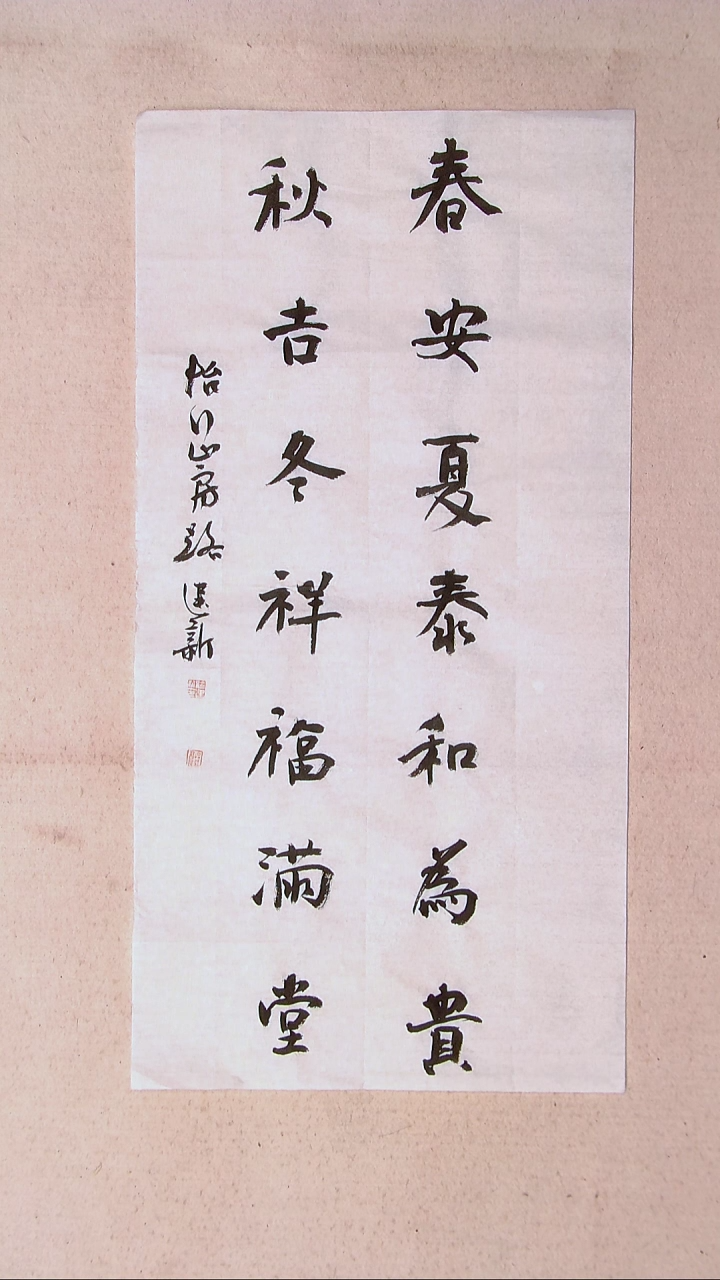 春安夏泰和為貴
秋吉冬祥福滿堂
怡山房路新